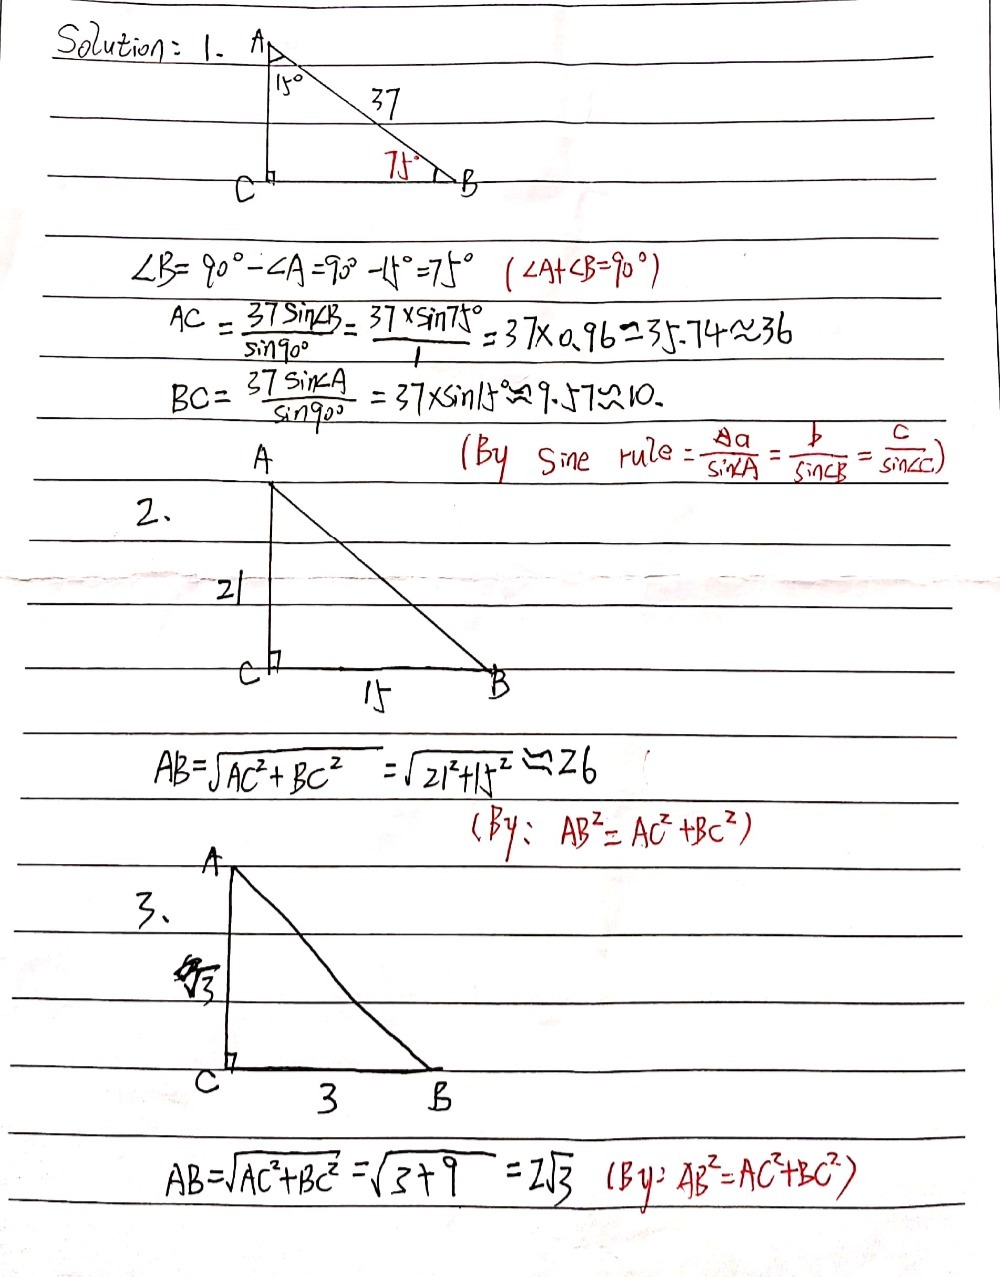 Solution: 1.
A
15°
37
75°
C
B
∠B= 90°-∠A=90°-15°=75° (∠A+∠B=90°)
AC = 37 sin∠B/sin90° = 37×sin75°/1 = 37×0.96≃35.74≈36
BC= 37 sin∠A/sin90° = 37×sin15°≈9.57≈10.
(By Sine rule = a/sin∠A = b/sin∠B = c/sin∠C)
2.
A
21
C
15
B
AB=√AC²+BC² =√21²+15² ≈26
(By: AB²=AC²+BC²)
3.
A
√3
C
3
B
AB=√AC²+BC² =√3+9 =2√3 (By: AB²=AC²+BC²)